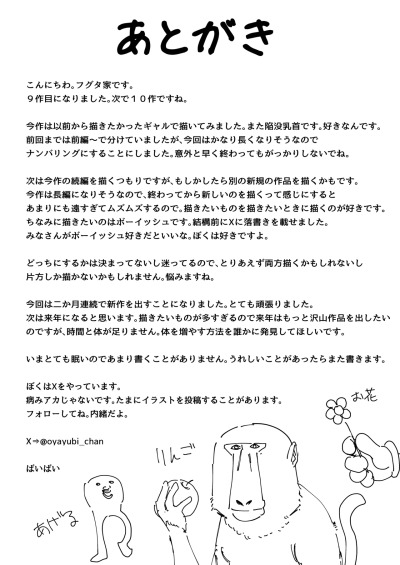 あとがき
こんにちわ。フグタ家です。
９作目になりました。次で１０作ですね。
今作は以前から描きたかったギャルで描いてみました。また陥没乳首です。好きなんです。
前回までは前編～で分けていましたが、今回はかなり長くなりそうなので
ナンバリングにすることにしました。意外と早く終わってもがっかりしないでね。
次は今作の続編を描くつもりですが、もしかしたら別の新規の作品を描くかもです。
今作は長編になりそうなので、終わってから新しいのを描くって感じにすると
あまりにも遠すぎてムズムズするので。描きたいものを描きたいときに描くのが好きです。
ちなみに描きたいのはボーイッシュです。結構前にXに落書きを載せました。
みなさんがボーイッシュ好きだといいな。ぼくは好きですよ。
どっちにするかは決まってないし迷ってるので、とりあえず両方描くかもしれないし
片方しか描かないかもしれません。悩みますね。
今回は二か月連続で新作を出すことになりました。とても頑張りました。
次は来年になると思います。描きたいものが多すぎるので来年はもっと沢山作品を出したい
のですが、時間と体が足りません。体を増やす方法を誰かに発見してほしいです。
いまとても眠いのであまり書くことがありません。うれしいことがあったらまた書きます。
ぼくはXをやっています。
病みアカじゃないです。たまにイラストを投稿することがあります。
フォローしてね。内緒だよ。
X⇒@oyayubi_chan
ばいばい
あげる
りんご
お花